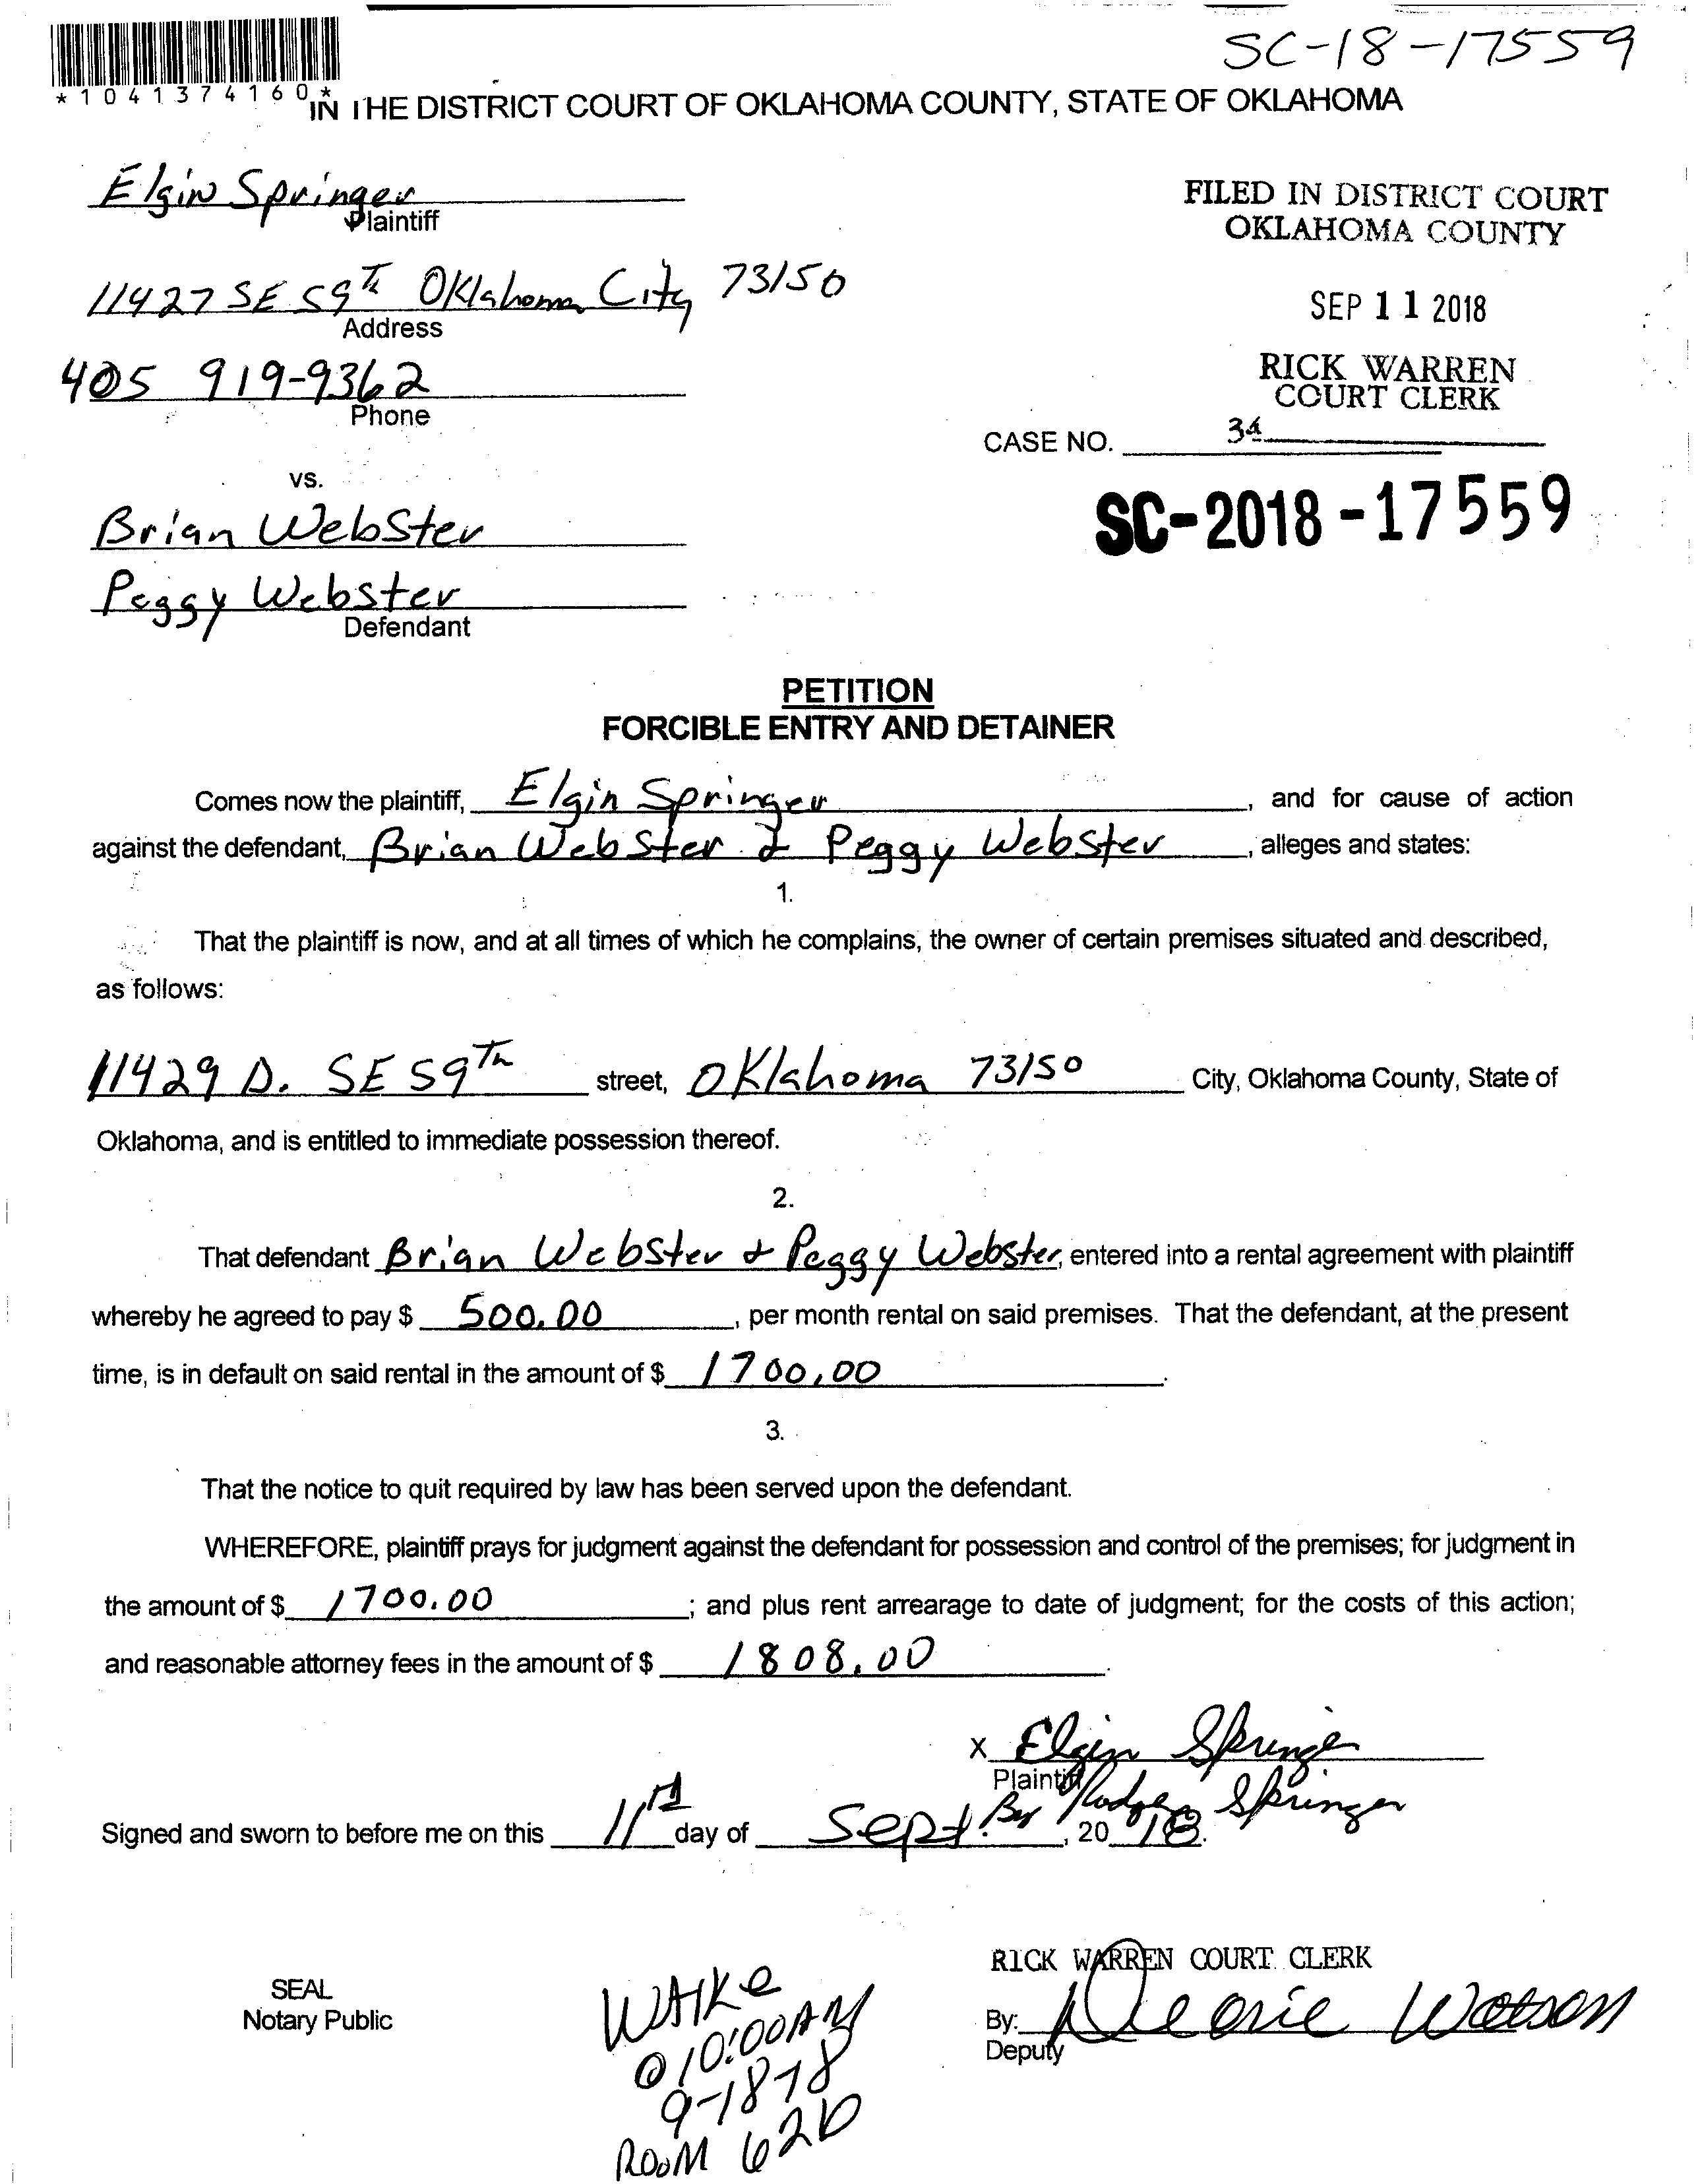 SC-18-17559
*1041374160*
IN THE DISTRICT COURT OF OKLAHOMA COUNTY, STATE OF OKLAHOMA
Elgin Springer
Plaintiff
11427 SE 59th Oklahoma City 73150
Address
405 919-9362
Phone
vs.
Brian Webster
Peggy Webster
Defendant
FILED IN DISTRICT COURT
OKLAHOMA COUNTY
SEP 11 2018
RICK WARREN
COURT CLERK
34
CASE NO.
SC-2018-17559
PETITION
FORCIBLE ENTRY AND DETAINER
Comes now the plaintiff, Elgin Springer, and for cause of action
against the defendant, Brian Webster & Peggy Webster, alleges and states:
1.
That the plaintiff is now, and at all times of which he complains, the owner of certain premises situated and described,
as follows:
11429 D. SE 59Th street, Oklahoma 73150 City, Oklahoma County, State of
Oklahoma, and is entitled to immediate possession thereof.
2.
That defendant Brian Webster & Peggy Webster, entered into a rental agreement with plaintiff
whereby he agreed to pay $ 500.00, per month rental on said premises. That the defendant, at the present
time, is in default on said rental in the amount of $ 1700.00.
3.
That the notice to quit required by law has been served upon the defendant.
WHEREFORE, plaintiff prays for judgment against the defendant for possession and control of the premises; for judgment in
the amount of $ 1700.00; and plus rent arrearage to date of judgment; for the costs of this action;
and reasonable attorney fees in the amount of $ 1808.00.
X Elgin Springer
Plaintiff
By Rodger Springer
Signed and sworn to before me on this 11th day of Sept., 2018.
SEAL
Notary Public
WAIKe
@ 10:00AM
9-18-18
ROOM 620
RICK WARREN COURT CLERK
By: Watson
Deputy